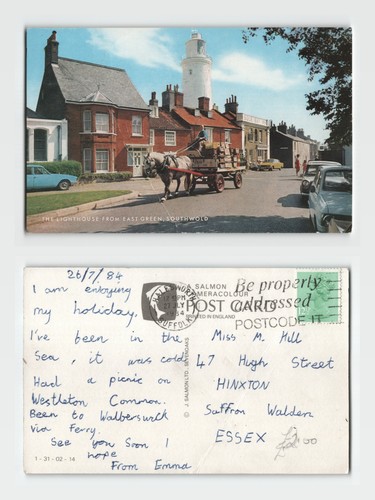 THE LIGHTHOUSE FROM EAST GREEN, SOUTHWOLD
26/7/84
I am enjoying
my holiday.
I've been in the
Sea, it was cold.
Had a picnic on
Westleton Common.
Been to Walberswick
via Ferry.
See you Soon I
hope
From Emma
1-31-02-14
© J. SALMON LTD., SEVENOAKS
SALMON
CAMERACOLOUR
POST CARD
PRINTED IN ENGLAND
HALESWORTH
JLY
1984
SUFFOLK
Be properly
addressed
POSTCODE IT
Miss M. Hill
47 High Street
HINXTON
Saffron Walden
ESSEX